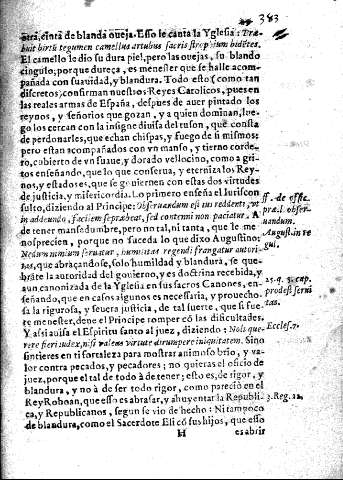 383
otra, cinta de blanda oveja. Esso le canta la Yglesia: Præ-
buit hirtũ tegumen camellus artubus sacris strophium bidētes.
El camello le dio su dura piel, pero las ovejas, su blando
cingulo; porque dureça, es menester que se halle acom-
pañada con suavidad, y blandura. Todo esto (como tan
discretos) confirman nuestros Reyes Catolicos, pues en
las reales armas de España, despues de auer pintado los
reynos, y señorios que gozan, y a quien dominan, lue-
go los cercan con la insigne diuisa del tuson, que consta
de perdonarles, que echan chispas, y fuego de si mismos;
pero estan acompañados con vn manso, y tierno corde-
ro, cubierto de vn suaue, y dorado vellocino, como a gri-
tos enseñando, que lo que conserua, y eterniza los Rey-
nos, y estados es, que se gouiernen con estas dos virtudes
de justicia, y misericordia. Lo primero enseña el Iuriscon
sulto, diziendo al Principe: Observandum est ius reddenti, vt
in addeundo, facilem se præbeat, sed contemni non paciatur. A
de tener mansedumbre, pero no tal, ni tanta, que le me
nosprecien, porque no suceda lo que dixo Augustino:
Ne dum nimium seruatur, humilitas regendi frangatur autori
tas, que abraçandose, solo humildad y blandura, se que-
brãte la autoridad del gouierno, y es doctrina recebida, y
aun canonizada de la Yglesia en sus sacros Canones, en-
señando, que en casos algunos es necessaria, y prouecho-
sa la rigurosa, y seuera justicia, de tal suerte, que si fue-
re menester, dene el Principe romper cō las dificultades.
Y assi auisa el Espiritu santo al juez, diziendo: Noli quæ-
rere fieri iudex, nisi valeas virtute dirumpere iniquitatem. Sino
sintieres en ti fortaleza para mostrar animoso brio, y va-
lor contra pecados, y pecadores; no quieras el oficio de
juez, porque el tal de todo à de tener; esto es, de rigor, y
blandura, y no à de ser todo rigor, como pareciò en el
Rey Roboan, que esso es abrasar, y ahuyentar la Republi-
ca, y Republicanos, segun se vio de hecho: Ni tampoco
de blandura, como el Sacerdote Eli cō sus hijos, que esso
H
es abrir
ff. de offic.
præs. l. obser
uandum.
August. in re
gui.
23. q. 5. cap.
prodest seueri
tas.
Eccles. 7.
3. Reg. 12.